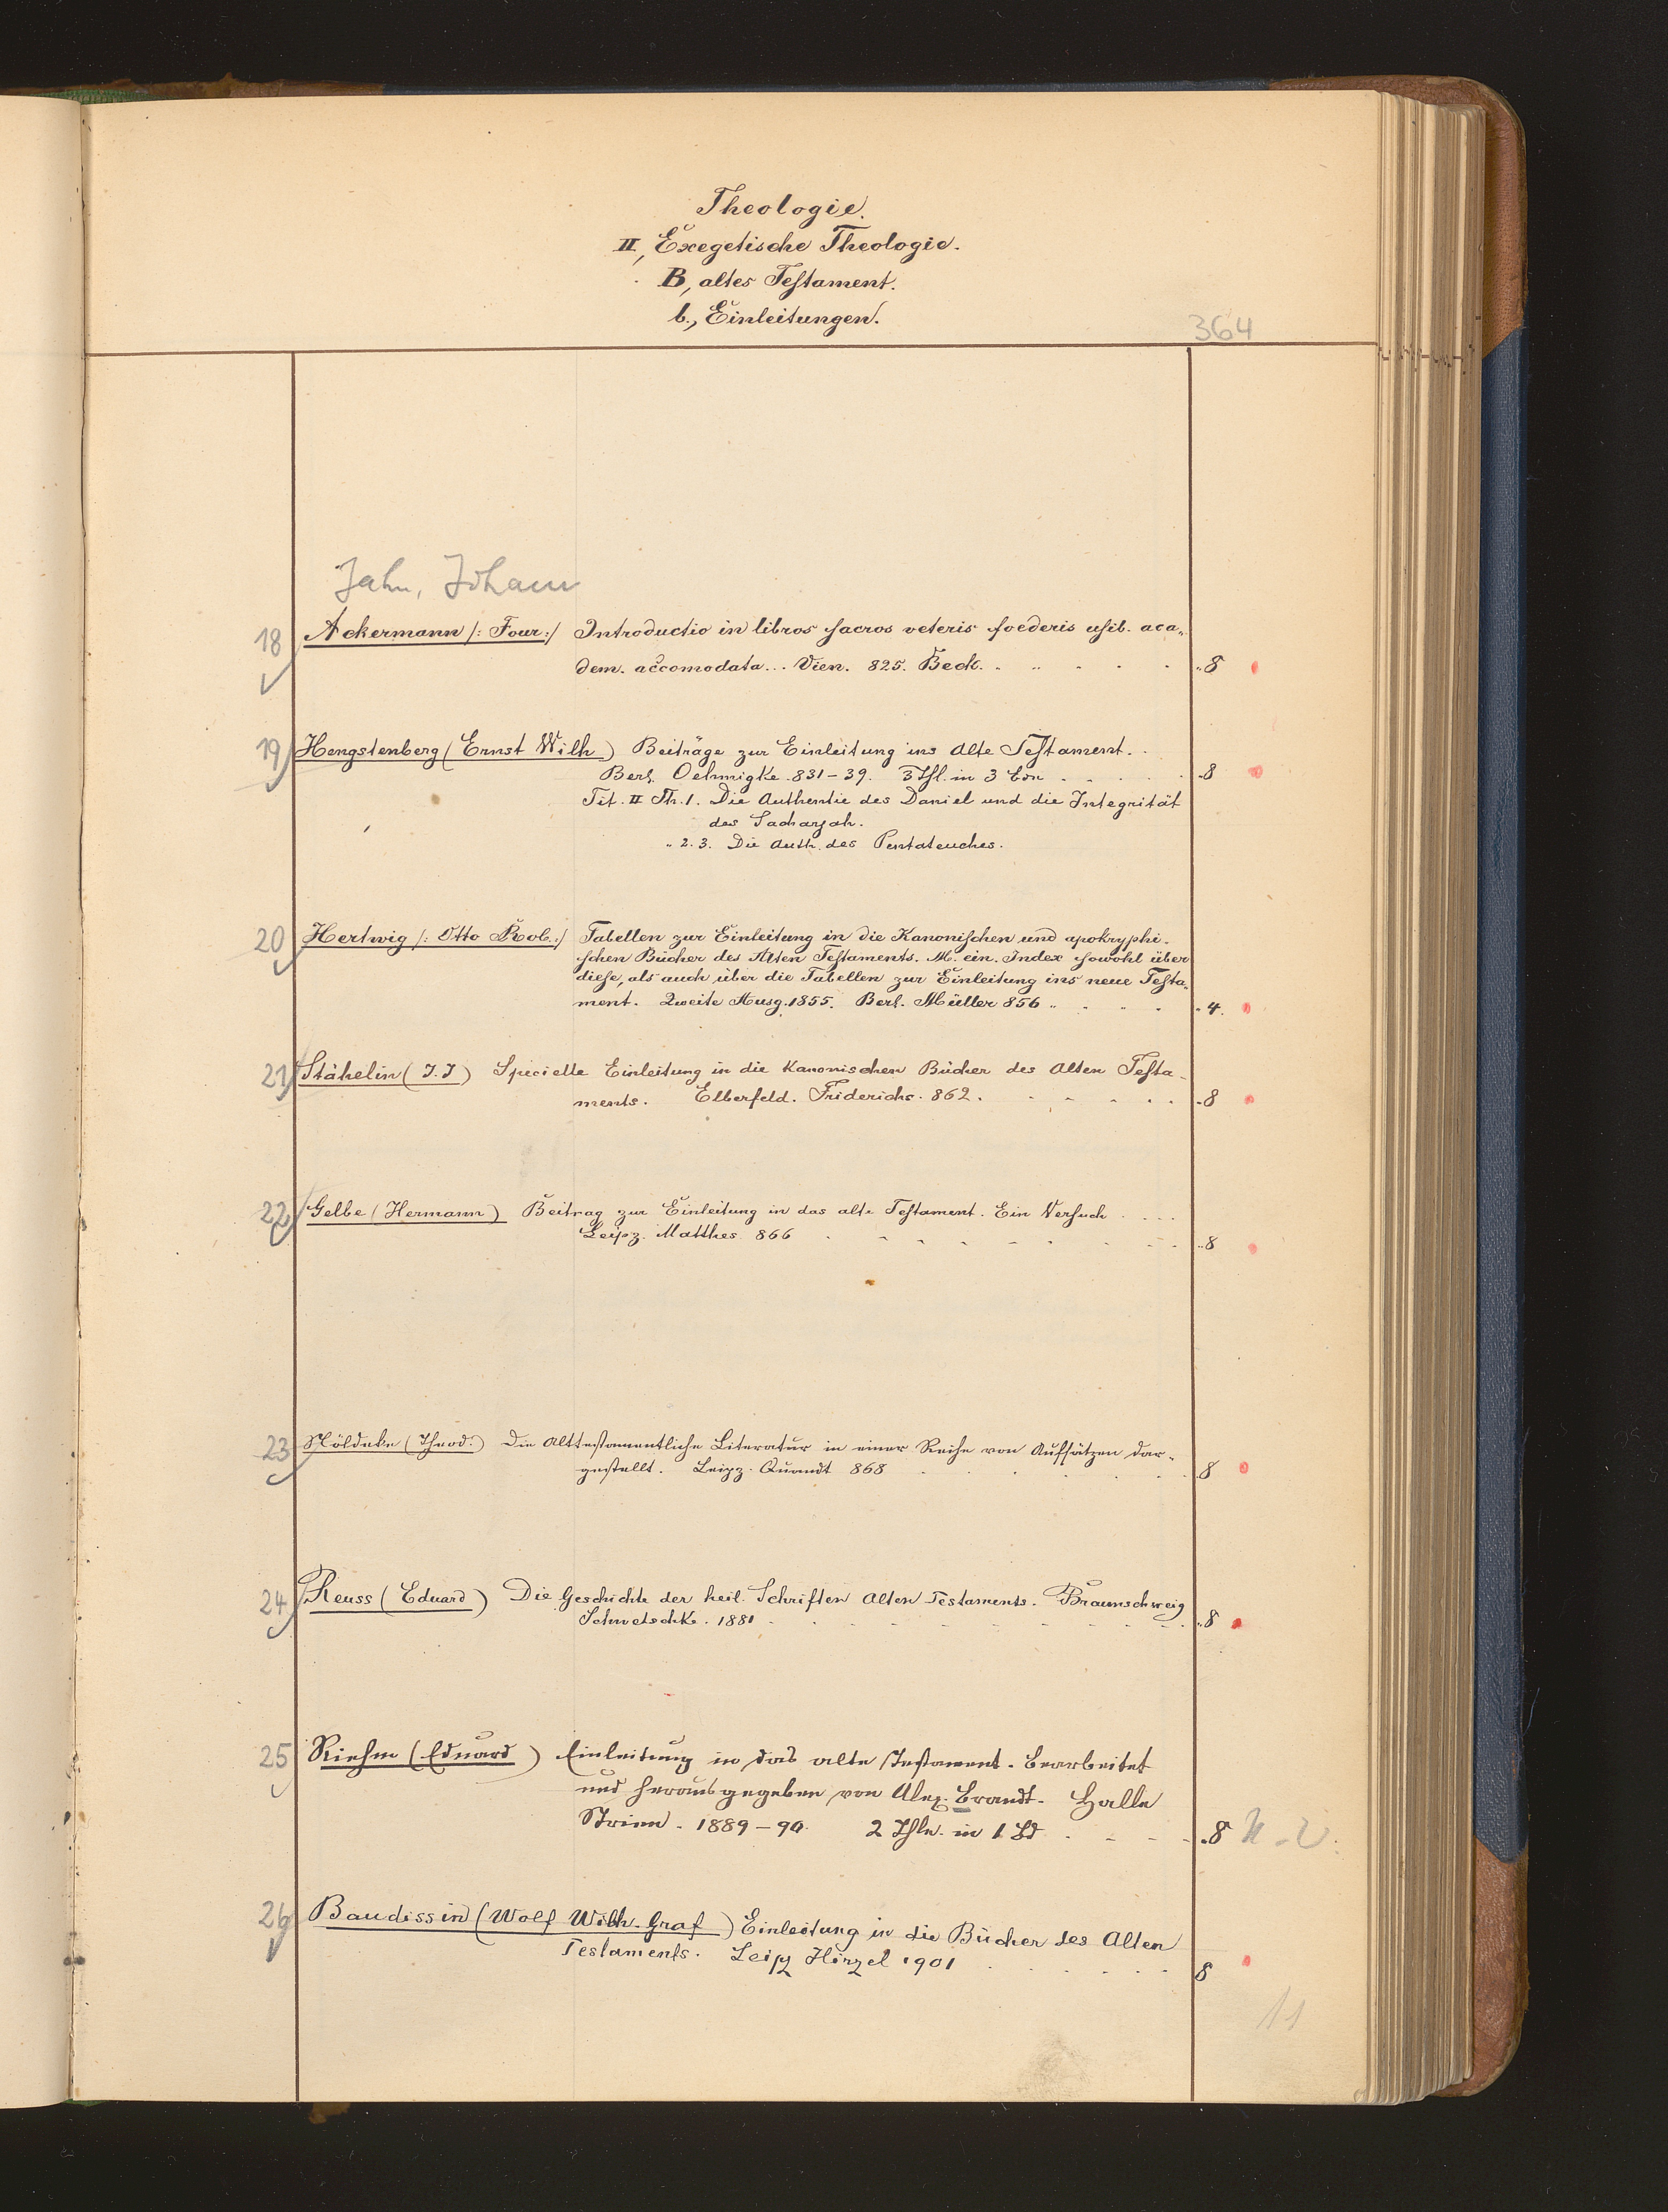 Theologie.
II, Exegetische Theologie.
B, altes Testament.
b., Einleitungen.
364
Jahn, Johann
18 Ackermann /: Four:/ Introductio in libros sacros veteris foederis usib. aca„
dem. accomodata... Vien. 825. Beck. „8
19 Hengstenberg (Ernst Wilh) Beiträge zur Einleitung ins Alte Testament.
Berl. Oehmigke. 831-39. 3 Thl. in 3 Bdn . . . . . 8
Tit. II Th. 1. Die Authentie des Daniel und die Integrität
des Sacharjah.
„ 2. 3. Die Auth. des Pentateuches.
20 Hertwig /: Otto Rob.:/ Tabellen zur Einleitung in die Kanonischen und apokryphi-
schen Bücher des Alten Testaments. M. ein. Index sowohl über
diese, als auch über die Tabellen zur Einleitung ins neue Testa„
ment. Zweite Ausg. 1855. Berl. Müller 856 „ 4.
21 Stähelin (J. J) Specielle Einleitung in die Kanonischen Bücher des Alten Testa-
ments. Elberfeld. Friderichs. 862. . . . . . . 8
22 Gelbe (Hermann) Beitrag zur Einleitung in das alte Testament. Ein Versuch . . . .
Leipz. Matthes 866 „8
23 Nöldeke (Theod.) Die Alttestamentliche Literatur in einer Reihe von Aufsätzen dar„
gestellt. Leipz. Quandt 868 8
24 Reuss (Eduard) Die Geschichte der heil. Schriften Alten Testaments. Braunschweig
Schwetschke. 1881 „8
25 Riehm (Eduard) Einleitung in das alte Testament. Bearbeitet
und herausgegeben von Alex. Brandt. Halle
Strien. 1889-90. 2 Thle. in 1 Bd . . . . 8
26 Baudissin (Wolf Wilh. Graf) Einleitung in die Bücher des Alten
Testaments. Leipz Hirzel 1901 8
11